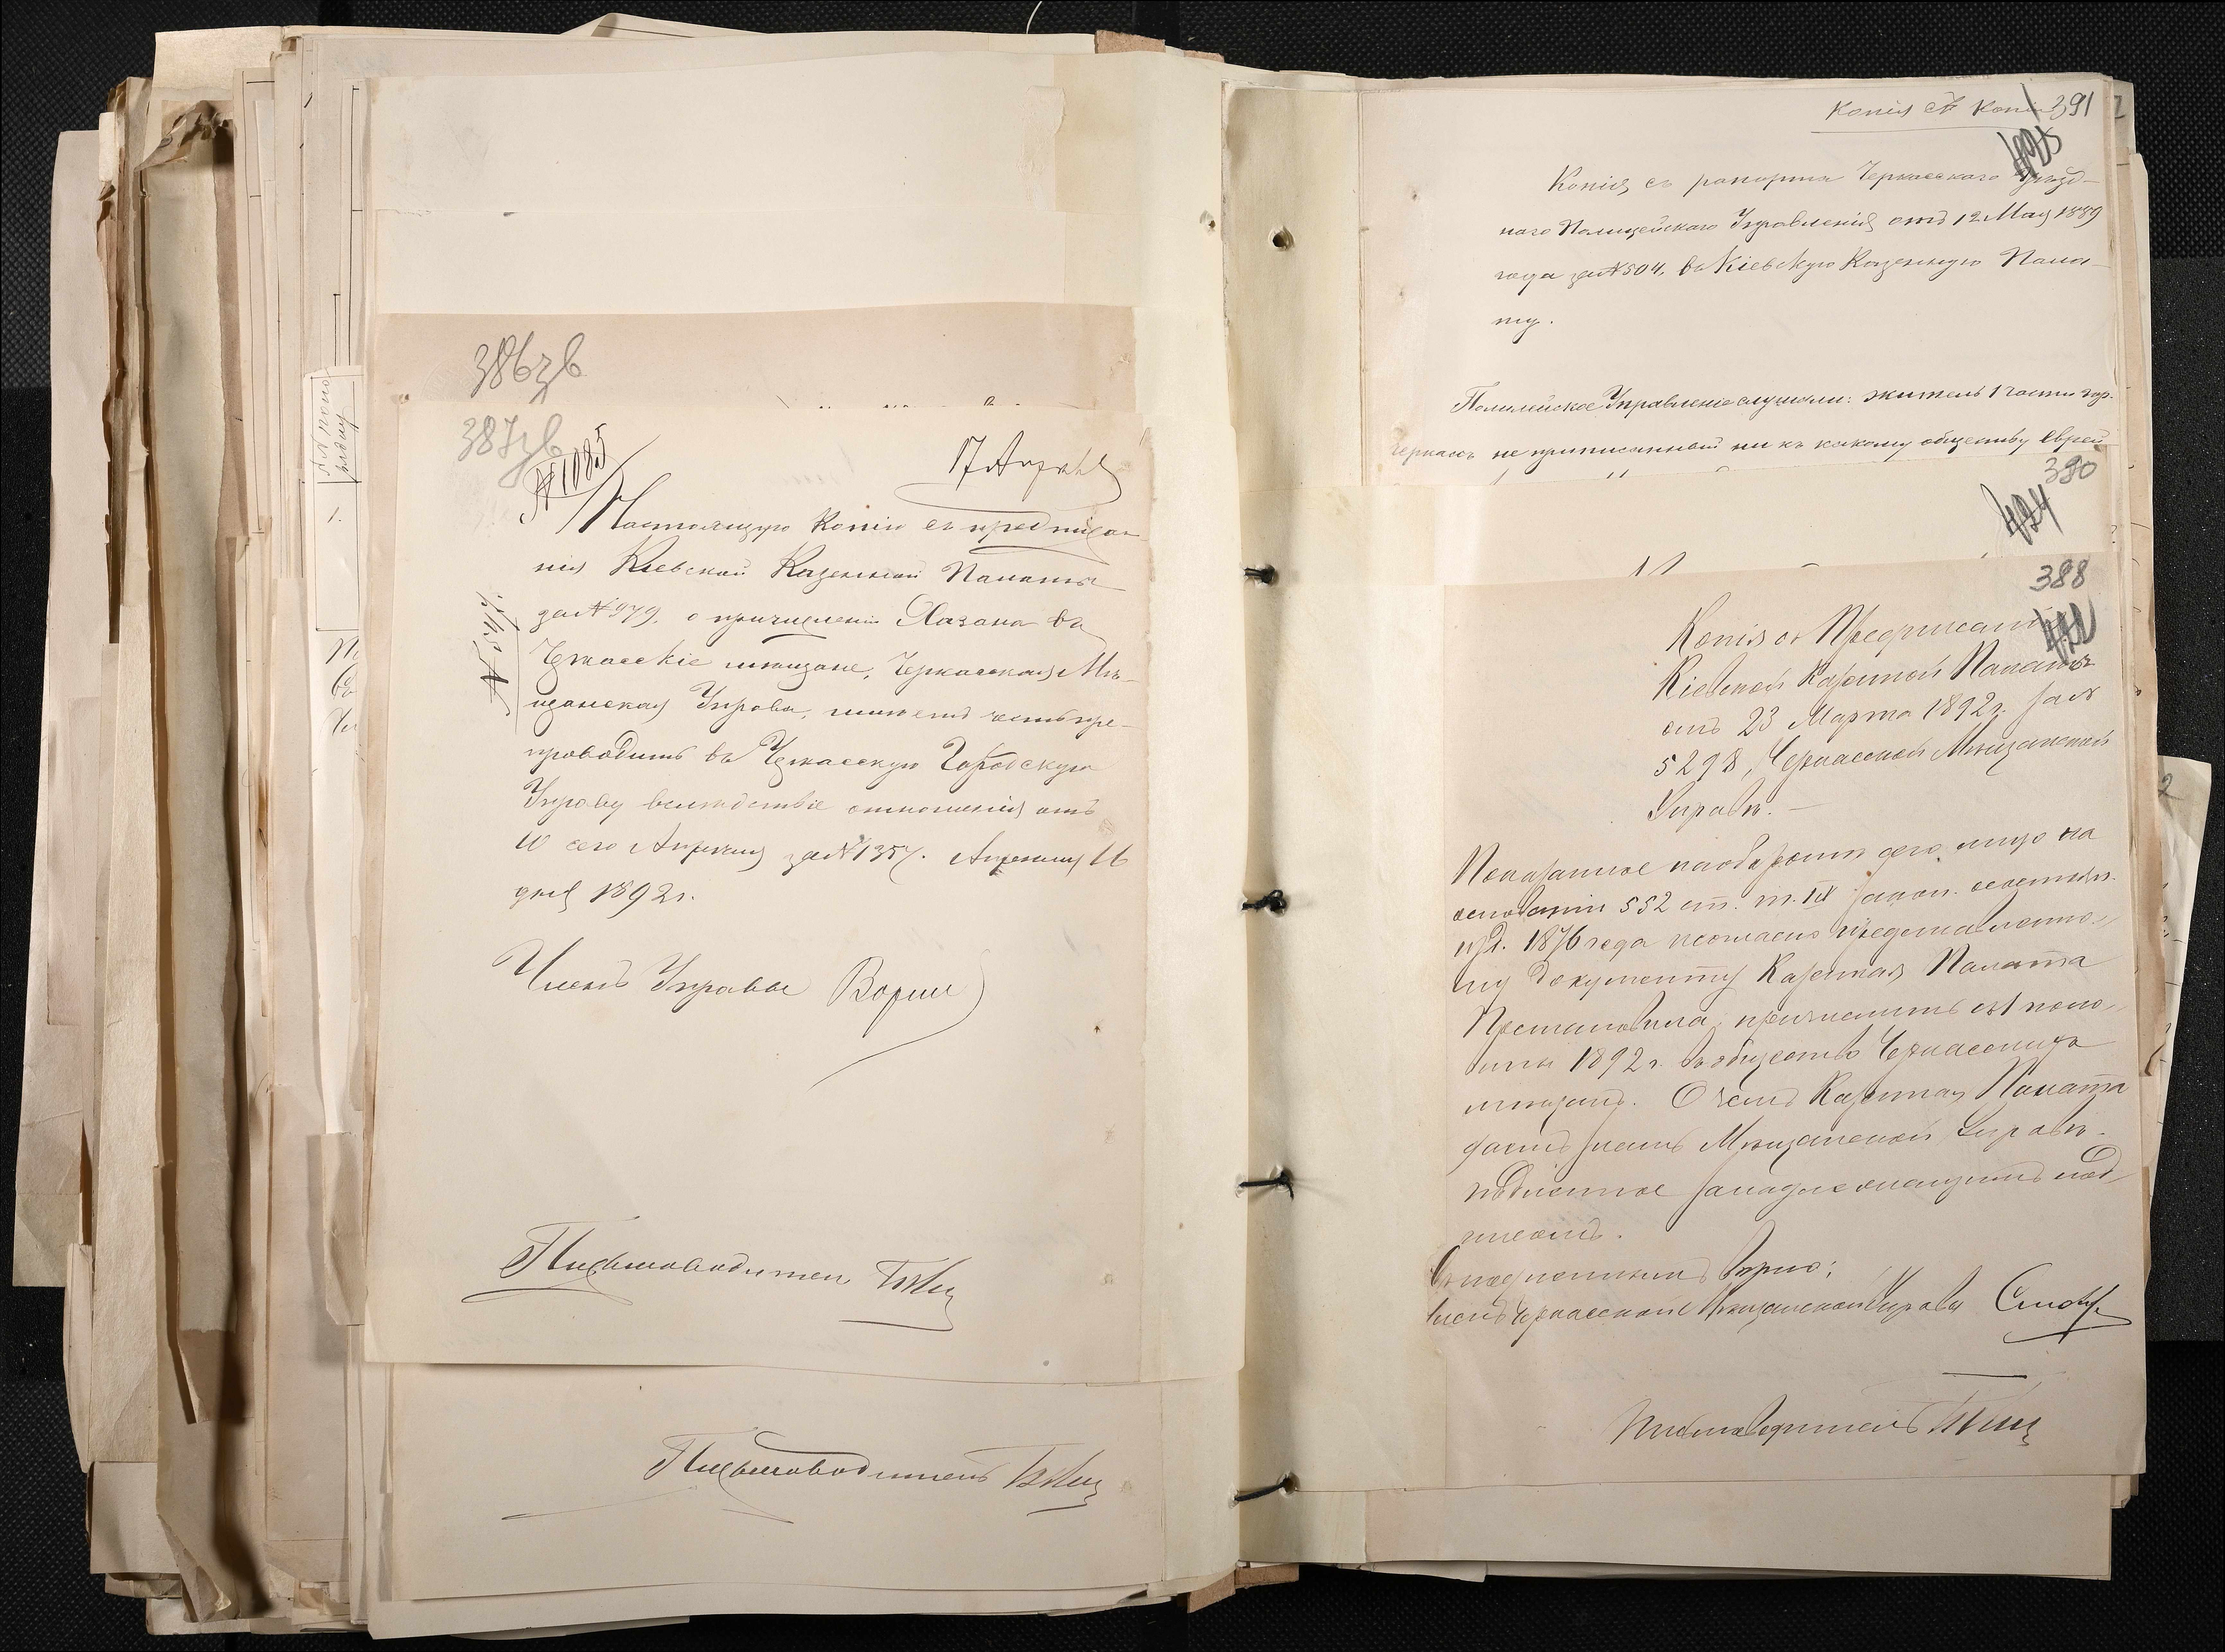 386зв
387зв
№1085
17 Апрѣля
Настоящую копію съ предписа-
нія Кіевской Казенной Палаты
за №979, о причисленіи Хазана въ
Черкасскіе мѣщане, Черкасская Мѣ-
щанская Управа, имѣетъ честь пре-
проводить въ Черкасскую Городскую
Управу вслѣдствіе отношенія отъ
10 сего Апрѣля за №1357. Апрѣля 16
дня 1892 г.
Членъ Управы
Письмоводитель
Письмоводитель
№№ по по-
рядку
1.
Копія съ копіи 391
425
Копія съ рапорта Черкасскаго Уѣзд-
наго Полицейскаго Управленія отъ 12 Мая 1889
года за №504, въ Кіевскую Казенную Пала-
ту.
Полицейское Управленіе слушали: житель 1 части гор.
Черкассъ не приписанный ни къ какому обществу Еврей
390
424
388
422
Копія съ Предписанія
Кіевской Казенной Палаты
отъ 23 Марта 1892 г. за №
5298, Черкасской Мѣщанской
Управѣ. —
Показанное на оборотѣ сего лицо на
основаніи 552 ст. т. IX закон. о состоян.
изд. 1876 года и согласно представленно-
му документу Казенная Палата
Постановила: причислить съ 1 поло-
вины 1892 г. въ общество Черкасскихъ
мѣщанъ. О чемъ Казенная Палата
даетъ знать Мѣщанской Управѣ.
Подлинное за надлежащимъ под-
писомъ.
Съ подлиннымъ вѣрно:
Членъ Черкасской Мѣщанской Управы
Письмоводитель